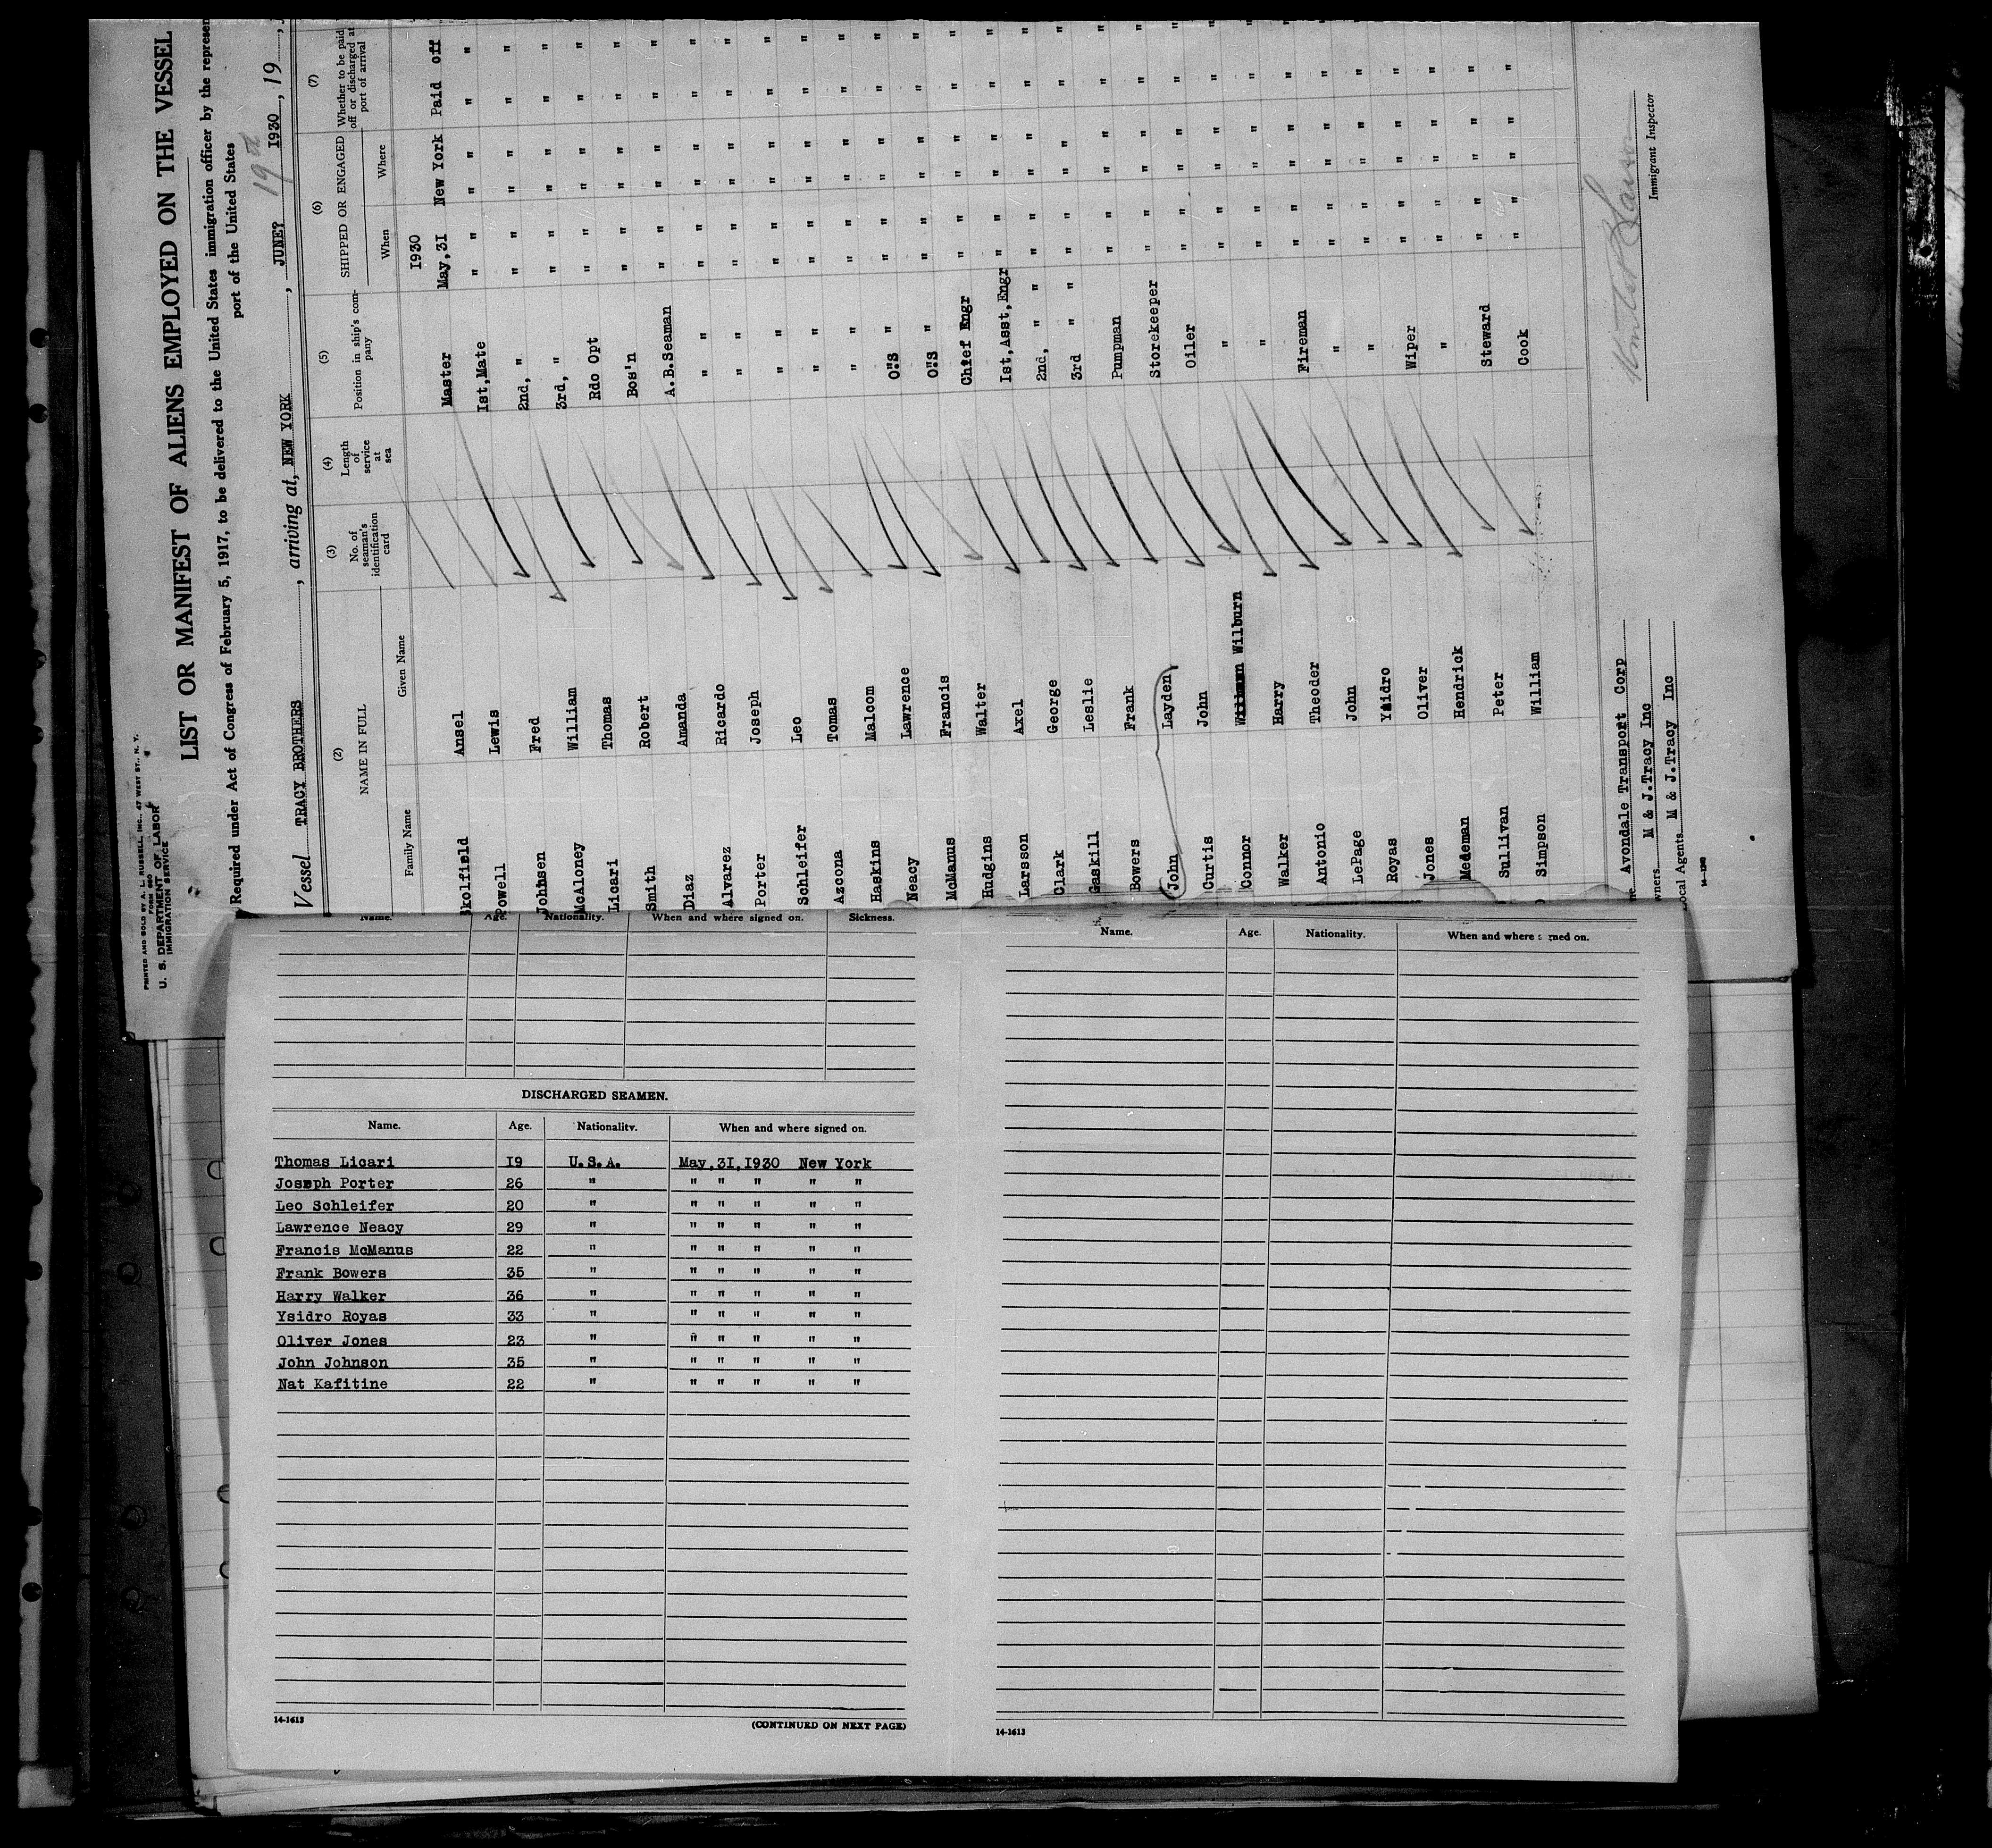 PRINTED AND SOLD BY A. L. RUSSELL, INC., 47 WEST ST., N. Y.
FORM 680
U. S. DEPARTMENT OF LABOR
IMMIGRATION SERVICE
LIST OR MANIFEST OF ALIENS EMPLOYED ON THE VESSEL
Required under Act of Congress of February 5, 1917, to be delivered to the United States immigration officer by the represen
port of the United States
Vessel TRACY BROTHERS, arriving at, NEW YORK, JUNE? 19th 1930, 19
(2) (3) (4) (5) (6) (7)
NAME IN FULL No. of seaman's identification card Length of service at sea Position in ship's company SHIPPED OR ENGAGED Whether to be paid off or discharged at port of arrival
Family Name Given Name When Where
1930
Skolfield Ansel Master May,31 New York Paid off
Powell Lewis Ist,Mate " " " " "
Johnsen Fred 2nd, " " " " " " "
McAloney William 3rd, " " " " " " "
Licari Thomas Rdo Opt " " " " " "
Smith Robert Bos'n " " " " " "
Diaz Amanda A.B.Seaman " " " " " "
Alvarez Ricardo " " " " " " " "
Porter Joseph " " " " " " " "
Schleifer Leo " " " " " " " "
Azcona Tomas " " " " " " " "
Haskins Malcom " " " " " " " "
Neacy Lawrence O"S " " " " " " "
McManus Francis O"S " " " " " " "
Hudgins Walter Chief Engr " " " " " "
Larsson Axel Ist,Asst,Engr " " " " " "
Clark George 2nd, " " " " " " " "
Gaskill Leslie 3rd " " " " " " " "
Bowers Frank Pumpman " " " " " "
John Layden Storekeeper " " " " " "
Curtis John Oiler " " " " " "
Connor Wilburn " " " " " " "
Walker Harry " " " " " " "
Antonio Theoder Fireman " " " " " "
LePage John " " " " " " "
Royas Ysidro " " " " " " "
Jones Oliver Wiper " " " " " "
Medeman Hendrick " " " " " " "
Sullivan Peter Steward " " " " " "
Simpson William Cook " " " " " "
Immigrant Inspector
Avondale Transport Corp
wners M & J.Tracy Inc
Local Agents M & J.Tracy Inc
Name. Age. Nationality. When and where signed on. Sickness.
DISCHARGED SEAMEN.
Name. Age. Nationality. When and where signed on.
Thomas Licari 19 U.S.A. May,31,1930 New York
Joseph Porter 26 " " " " " "
Leo Schleifer 20 " " " " " "
Lawrence Neacy 29 " " " " " "
Francis McManus 22 " " " " " "
Frank Bowers 35 " " " " " "
Harry Walker 36 " " " " " "
Ysidro Royas 33 " " " " " "
Oliver Jones 23 " " " " " "
John Johnson 35 " " " " " "
Nat Kafitine 22 " " " " " "
14-1613 (CONTINUED ON NEXT PAGE)
Name. Age. Nationality. When and where ned on.
14-1613